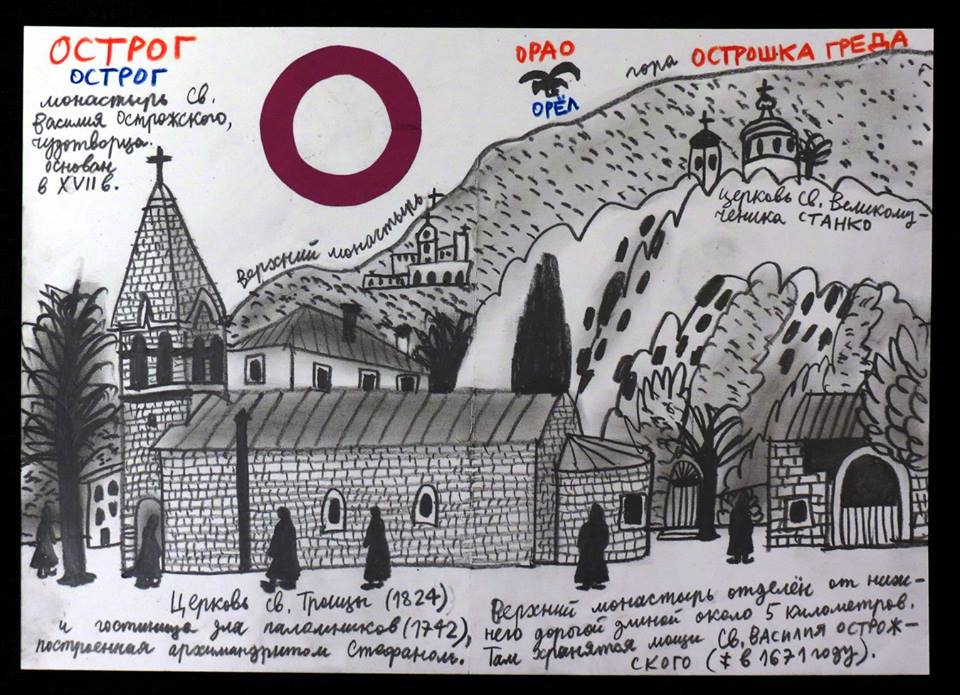 ОСТРОГ
ОСТРОГ
монастырь св.
василия острожского,
чудотворца.
основан
в XVII в.
ОРАО
ОРЁЛ
гора ОСТРОШКА ГРЕДА
верхний монастырь
церковь св. великому-
ченика СТАНКО
Церковь св. Троицы (1824)
и гостиница для паломников (1742),
построенная архимандритом Стефаном.
Верхний монастырь отделён от ниж-
него дорогой длиной около 5 километров.
Там хранятся мощи св. ВАСИЛИЯ ОСТРОЖ-
СКОГО (‡ в 1671 году).